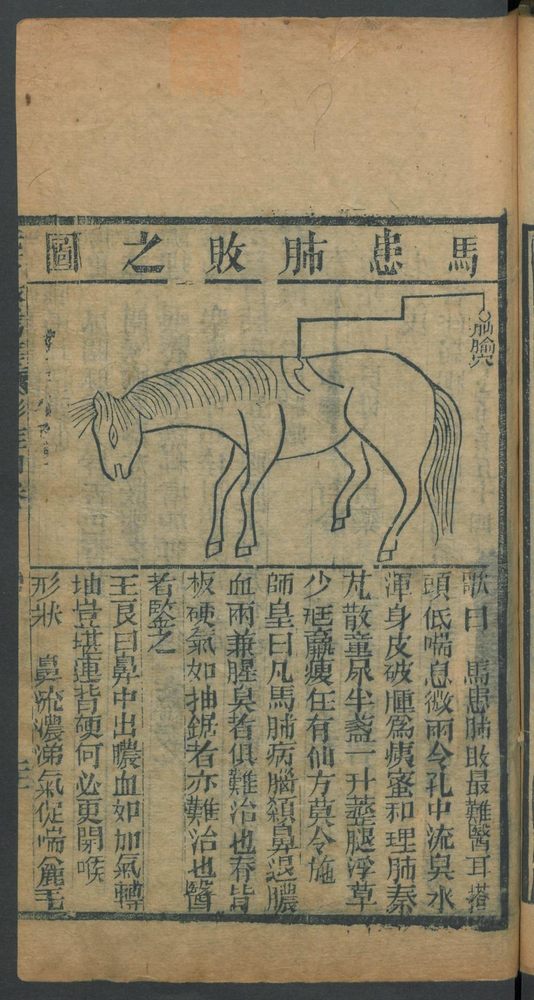 馬患肺敗之圖
肺腧穴
歌曰　馬患肺敗最難醫耳搭
頭低喘息微兩今孔中流臭水
渾身皮破腫為痍蜜和理肺秦
艽散童尿半盞一升虀腿浮草
少尪羸瘦任有仙方莫令施
師皇曰凡馬肺病腦顙鼻濕膿
血兩兼腥臭者俱難治也脊背
板硬氣如抽鋸者亦難治也醫
者鑒之
王良曰鼻中出膿血如加氣轉
怞豈堪連背硬何必更開喉
形狀　鼻流濃涕氣促喘麄毛